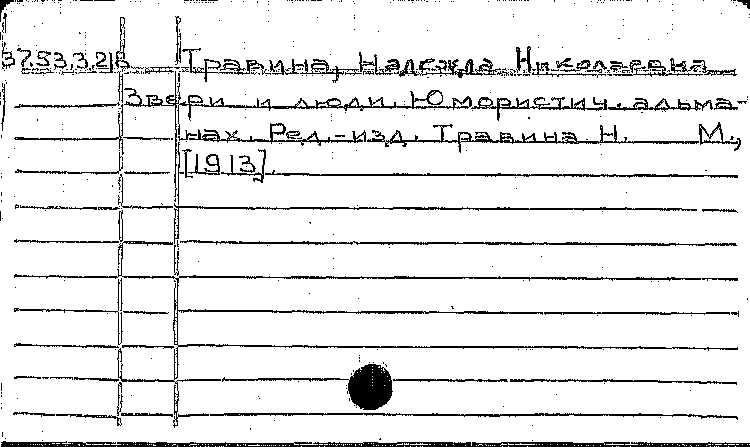 37.53.3.218 Травина, Надежда Николаевна
Звери и люди. Юмористич. альма-
нах. Ред.-изд. Травина Н. М.,
[1913].